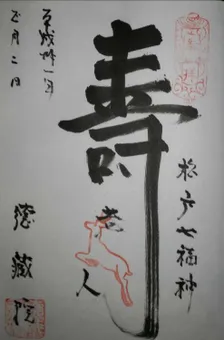 松戸七福神
壽老人
平成卅一年
正月二日
徳藏院